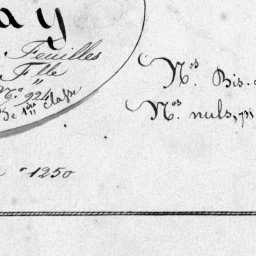 ay
Feuilles
Flle "
N.º 924
De 1ère classe
N.os Bis.
N.os nuls, pi
1250